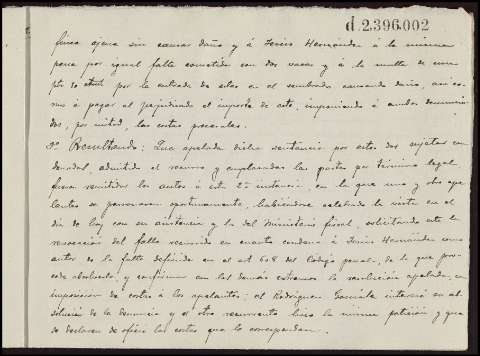 d.2.396.002
finca ajena sin causar daño y á Ferino Hernández á la misma
pena por igual falta cometida con dos vacas y á la multa de
por la entrada de estas en el sembrado causando daño, así co-
mo á pagar al perjudicado el importe de este, imponiendo á ambos denuncia-
dos, por mitad, las costas procesales.
Resultando: Que apelada dicha sentencia por estos dos sujetos con-
denados, admitido el recurso y emplazadas las partes por término legal
fueron remitidos los autos á esta 2ª instancia, en la que uno y otro ape-
lantes se personaron oportunamente, habiéndose celebrado la vista en el
día de hoy con su asistencia y la del Ministerio fiscal, solicitando este la
revocación del fallo recurrido en cuanto condena á Ferino Hernández como
autor de la falta definida en el art 608 del Código penal, de la que pro-
cede absolverlo, y confirmar en los demás extremos la resolución apelada, con
imposición de costas á los apelantes; el Rodríguez González interesó su ab-
solución de la denuncia y el otro recurrente hizo la misma petición y que
se declaren de oficio las costas que le correspondan.